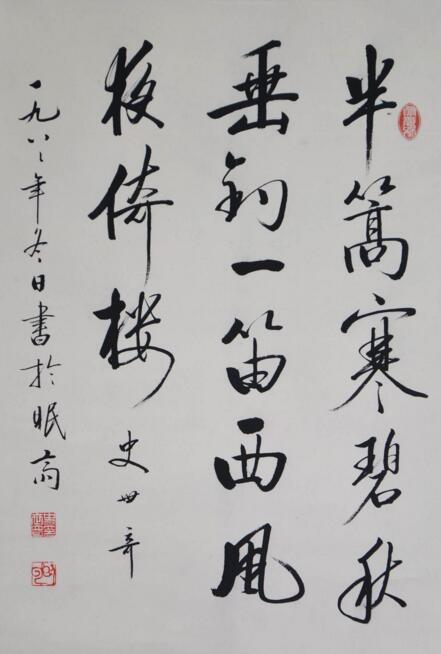 半篙寒碧秋
垂钓一笛西風
夜倚楼 史世奇
一九八〻年冬日書於眠斋